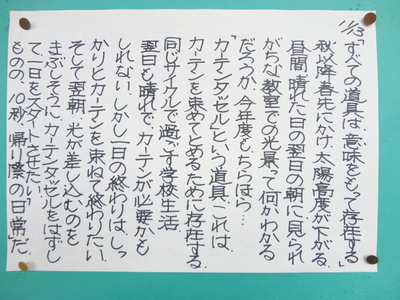 11/13
「すべての道具は、意味をもって存在する」
秋以降春先にかけ、太陽高度が下がる。
昼間、晴れた日の翌日の朝に見られ
がちな教室での光景って何かわかる
だろうか。今年度もちらほら…
「カーテンタッセル」という道具。これは、
カーテンを束めてとめるために存在する。
同じサイクルで過ごす学校生活。
翌日も晴れで、カーテンが必要かも
しれない。しかし、一日の終わりは、しっ
かりとカーテンを束ねて終わりたい。
そして翌朝、光が差し込むのを
まぶしそうに、カーテンタッセルをはずし
て、一日をスタートさせたい。
ものの、10秒、「帰り際の日常」だ。